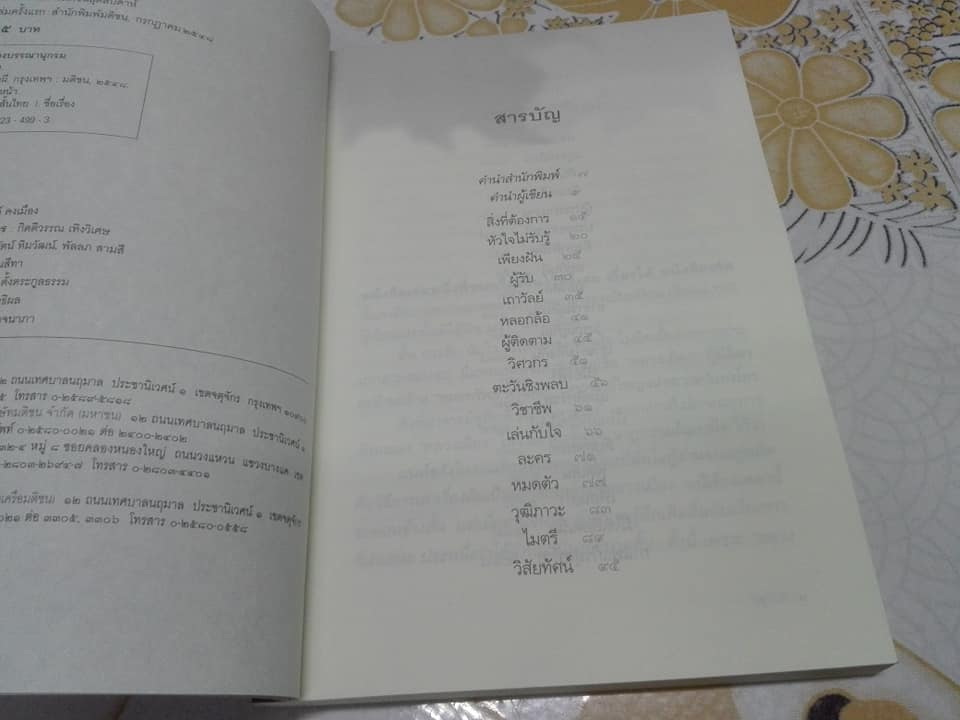 ล่มครั้งแรก : สำนักพิมพ์มติชน, กรกฎาคม ๒๕๔๘
๕ บาท
งบรรณานุกรม
กรุงเทพฯ : มติชน, ๒๕๔๘.
หน้า.
สั้นไทย I. ชื่อเรื่อง
23 - 499 - 3
คงเมือง
ร : กิตติวรรณ เทิงวิเศษ
รัตน์ ทิมวัฒน์, พัลลภ สามสี
นสีทา
ตั้งตระกูลธรรม
ธิผล
จนาภา
๒ ถนนเทศบาลนฤมาล ประชานิเวศน์ ๑ เขตจตุจักร กรุงเทพฯ ๑๐๙๐๐
๕ โทรสาร ๐-๒๕๘๙-๕๘๑๘
ษัทมติชน จำกัด (มหาชน) ๑๒ ถนนเทศบาลนฤมาล ประชานิเวศน์ ๑
ัพท์ ๐-๒๕๘๐-๐๐๒๑ ต่อ ๒๔๐๐-๒๔๐๒
๓๒-๔ หมู่ ๘ ซอยคลองหนองใหญ่ ถนนวงแหวน แขวงบางแค เขต
-๒๘๐๓-๒๖๙๔-๗ โทรสาร ๐-๒๘๐๓-๔๔๐๑
(เครือมติชน) ๑๒ ถนนเทศบาลนฤมาล ประชานิเวศน์ ๑ เขตจตุจักร
๐๒๑ ต่อ ๓๓๐๕, ๓๓๐๖ โทรสาร ๐-๒๕๘๐-๐๕๕๘
สารบัญ
คำนำสำนักพิมพ์ ๗
คำนำผู้เขียน ๙
สิ่งที่ต้องการ ๑๕
หัวใจไม่รับรู้ ๒๐
เพียงฝัน ๒๕
ผู้รับ ๓๐
เถาวัลย์ ๓๕
หลอกล้อ ๔๑
ผู้ติดตาม ๔๕
วิศวกร ๕๑
ตะวันชิงพลบ ๕๖
วิชาชีพ ๖๑
เล่นกับใจ ๖๖
ละคร ๗๑
หมดตัว ๗๗
วุฒิภาวะ ๘๓
ไมตรี ๘๙
วิสัยทัศน์ ๙๕